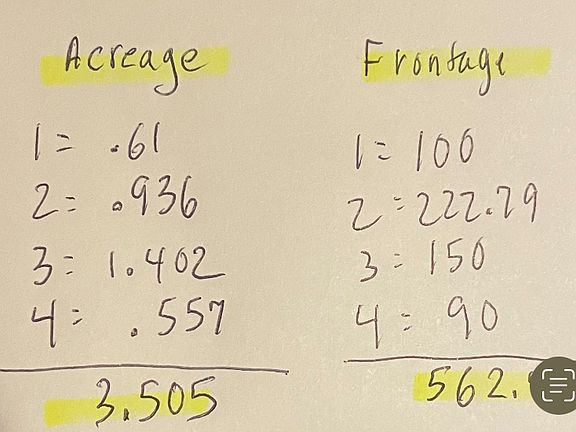 Acreage
1 = .61
2 = .936
3 = 1.402
4 = .557
3.505
Frontage
1 = 100
2 = 222.79
3 = 150
4 = 90
562.